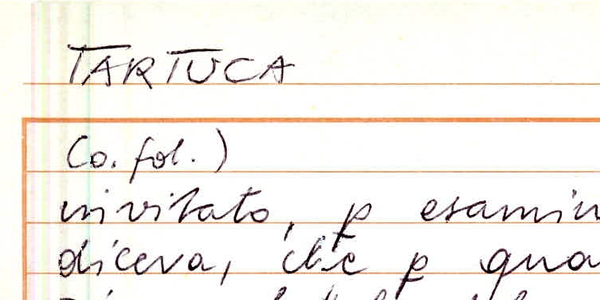 TARTUCA
(o. fol.)
invitato, p esamin
diceva, che p qua